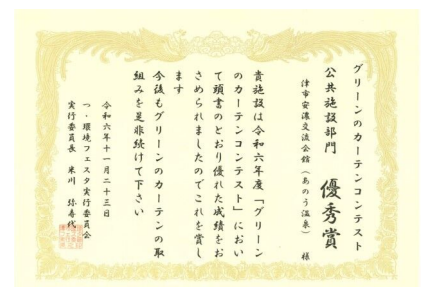 グリーンのカーテンコンテスト
公共施設部門 優秀賞
津市安濃交流会館（あのう温泉） 様
貴施設は令和六年度「グリーン
のカーテンコンテスト」におい
て頭書のとおり優れた成績をお
さめられましたのでこれを賞し
ます
今後もグリーンのカーテンの取
組みを是非続けて下さい
令和六年十一月二十三日
つ・環境フェスタ実行委員会
実行委員長 米川 弥寿代